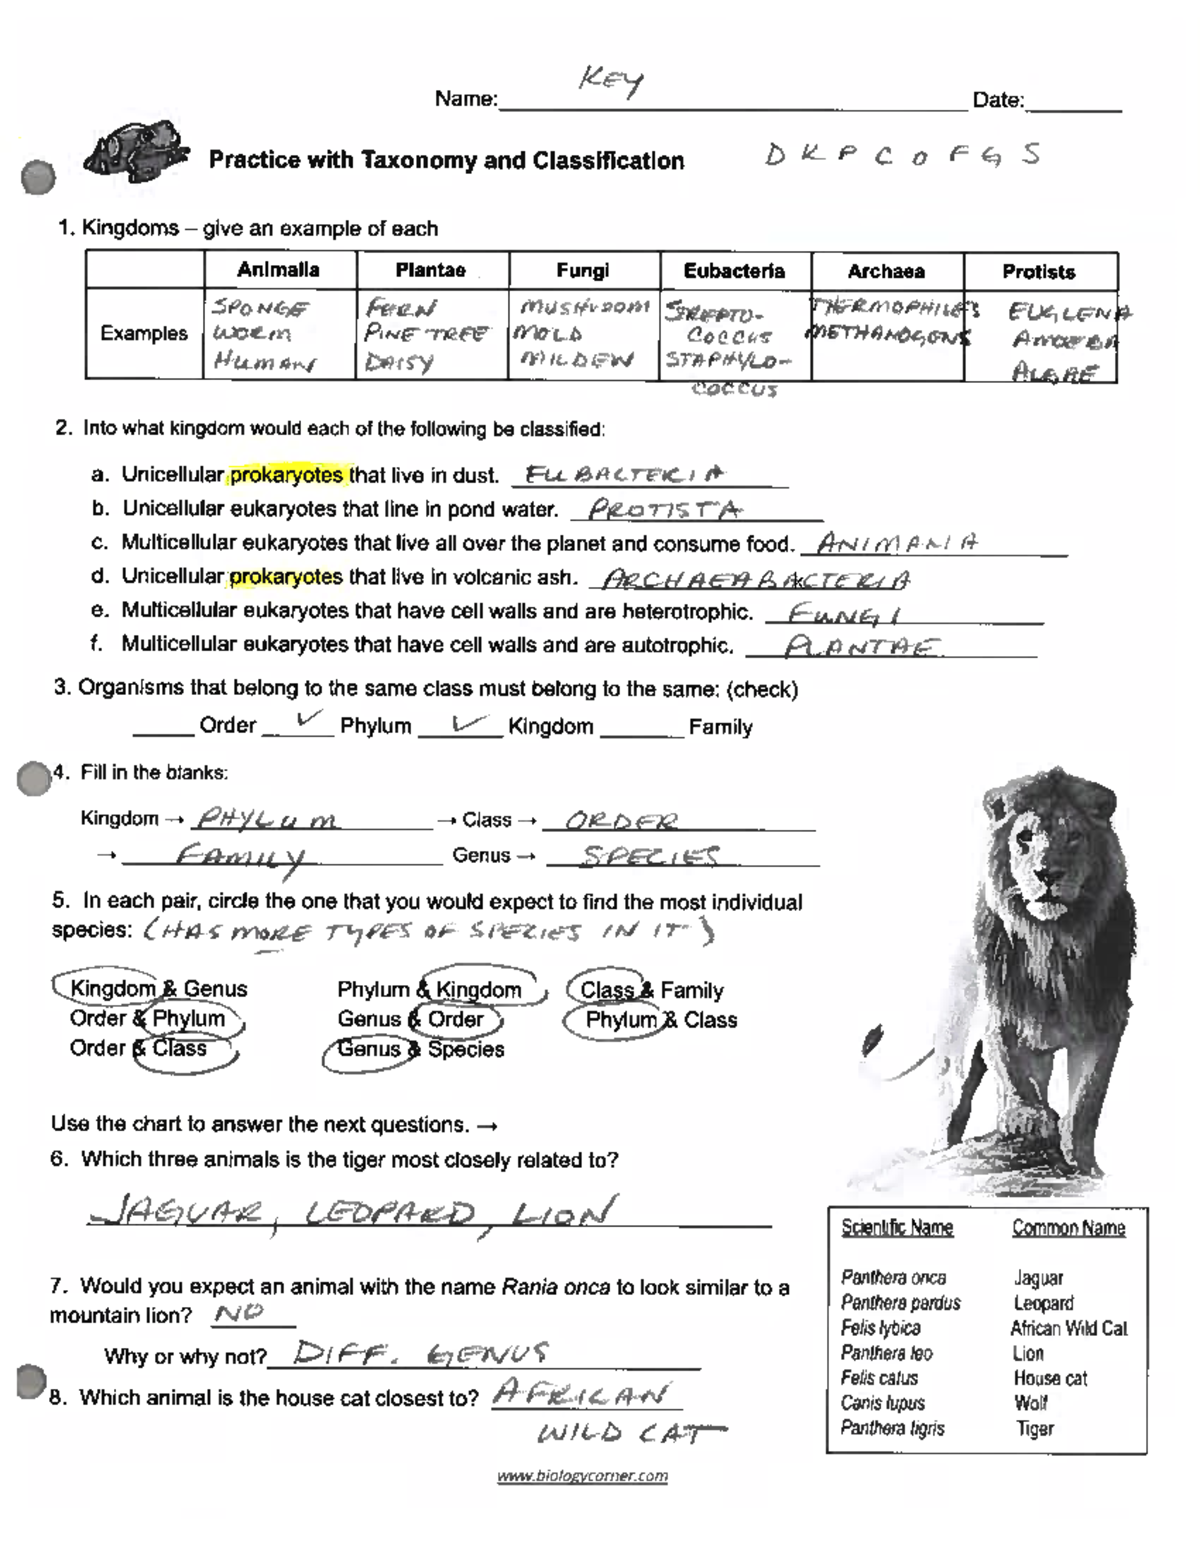 KEY
Name: Date:
Practice with Taxonomy and Classification D K P C O F G S
1. Kingdoms – give an example of each
Animalia Plantae Fungi Eubacteria Archaea Protists
Examples
SPONGE WORM HUMAN
FERN PINE TREE DAISY
MUSHROOM MOLD MILDEW
STREPTO-COCCUS STAPHYLO-COCCUS
THERMOPHILES METHANOGONS
EUGLENA AMOEBA ALGAE
2. Into what kingdom would each of the following be classified:
a. Unicellular prokaryotes that live in dust. EUBACTERIA
b. Unicellular eukaryotes that line in pond water. PROTISTA
c. Multicellular eukaryotes that live all over the planet and consume food. ANIMANIA
d. Unicellular prokaryotes that live in volcanic ash. ARCHAEABACTERIA
e. Multicellular eukaryotes that have cell walls and are heterotrophic. FUNGI
f. Multicellular eukaryotes that have cell walls and are autotrophic. PLANTAE
3. Organisms that belong to the same class must belong to the same: (check)
Order ✓ Phylum ✓ Kingdom Family
4. Fill in the blanks:
Kingdom → PHYLUM → Class → ORDER
→ FAMILY Genus → SPECIES
5. In each pair, circle the one that you would expect to find the most individual
species: (HAS MORE TYPES OF SPECIES IN IT)
Kingdom & Genus Phylum & Kingdom Class & Family
Order & Phylum Genus & Order Phylum & Class
Order & Class Genus & Species
Use the chart to answer the next questions. →
6. Which three animals is the tiger most closely related to?
JAGUAR, LEOPARD, LION
7. Would you expect an animal with the name Rania onca to look similar to a
mountain lion? NO
Why or why not? DIFF. GENUS
8. Which animal is the house cat closest to? AFRICAN
WILD CAT
Scientific Name Common Name
Panthera onca Jaguar
Panthera pardus Leopard
Felis lybica African Wild Cat
Panthera leo Lion
Felis catus House cat
Canis lupus Wolf
Panthera tigris Tiger
www.biologycorner.com